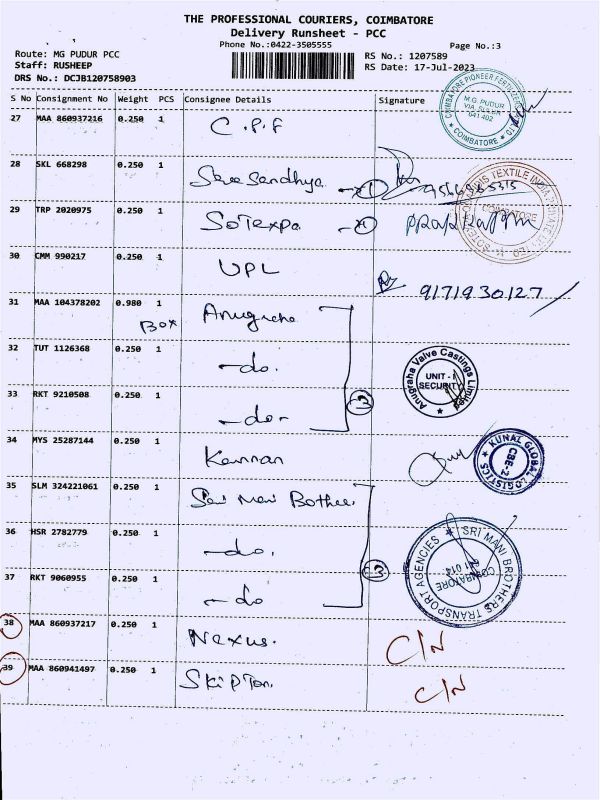 THE PROFESSIONAL COURIERS, COIMBATORE
Delivery Runsheet - PCC
Phone No.:0422-3505555
Page No.:3
Route: MG PUDUR PCC
Staff: RUSHEEP
DRS No.: DCJB120758903
RS No.: 1207589
RS Date: 17-Jul-2023
S No Consignment No Weight PCS Consignee Details Signature
COIMBATORE PIONEER FERTILIZERS
M.G. PUDUR
VIA, SULUR
641 402
COIMBATORE
27 MAA 860937216 0.250 1 C.P.F
28 SKL 668298 0.250 1
29 TRP 2020975 0.250 1 Sotexpa
TEXTILE INDIA PRIVATE
COIMBATORE
30 CMM 990217 0.250 1 UPL 9171930127
31 MAA 104378202 0.980 1 Anugraha
Box
32 TUT 1126368 0.250 1 -do.
Anugraha Valve Castings Limited
UNIT-1
SECURITY
33 RKT 9210508 0.250 1 -do-
3
34 MYS 25287144 0.250 1 Kannan
KUNAL GLOBAL LOGISTICS
CBE-2
35 SLM 324221061 0.250 1 Sri Mani Bothee.
36 HSR 2782779 0.250 1 -do.
3
SRI MANI BROTHERS TRANSPORT AGENCIES
COIMBATORE
641 014
37 RKT 9060955 0.250 1 -do
38 MAA 860937217 0.250 1 Nexus. C/N
39 MAA 860941497 0.250 1 Skipton. C/N